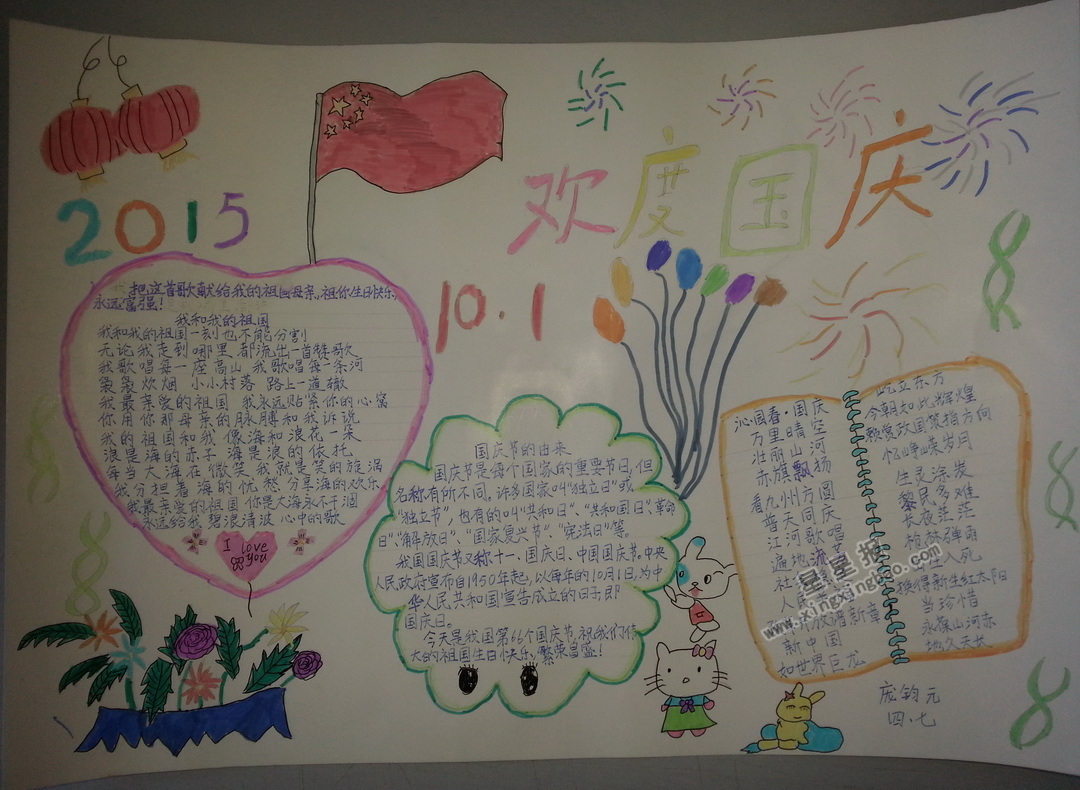 2015
欢度国庆
10.1
把这首歌献给我的祖国母亲。祖你生日快乐,
永远富强!
我和我的祖国
我和我的祖国一刻也不能分割
无论我走到哪里都流出一首赞歌
我歌唱每一座高山 我歌唱每一条河
袅袅炊烟 小小村落 路上一道辙
我最亲爱的祖国 我永远贴紧你的心窝
你用你那母亲的脉搏和我诉说
我的祖国和我 像海和浪花一朵
浪是海的赤子 海是浪的依托
每当大海在微笑 我就是笑的旋涡
我分担着海的忧愁 分享海的欢乐
我最亲爱的祖国 你是大海永不干涸
永远给我 碧浪清波 心中的歌
I love
you
国庆节的由来
国庆节是每个国家的重要节日,但
名称有所不同。许多国家叫“独立日”或
“独立节”,也有的叫“共和日”、“共和国日”、革命
日”、“解放日”、“国家复兴节”、“宪法日”等。
我国国庆节又称十一、国庆日、中国国庆节。中央
人民政府宣布自1950年起,以每年的10月1日,为中
华人民共和国宣告成立的日子,即
国庆日。
今天是我国第66个国庆节,祝我们伟
大的祖国生日快乐,繁荣昌盛!
沁园春·国庆
万里晴空
壮丽山河
赤旗飘扬
看九州方圆
普天同庆
江河歌唱
遍地流
社
人民
新章
新中国
如世界巨龙
屹立东方
今朝如此辉煌
赖党政国策指方向
忆峥嵘岁月
生灵涂炭
黎民多难
长夜茫茫
枪林弹雨
人死
换得新生红太阳
当珍惜
永保山河赤
地久天长
庞钧元
四.七
星星报
www.xingxingbao.com